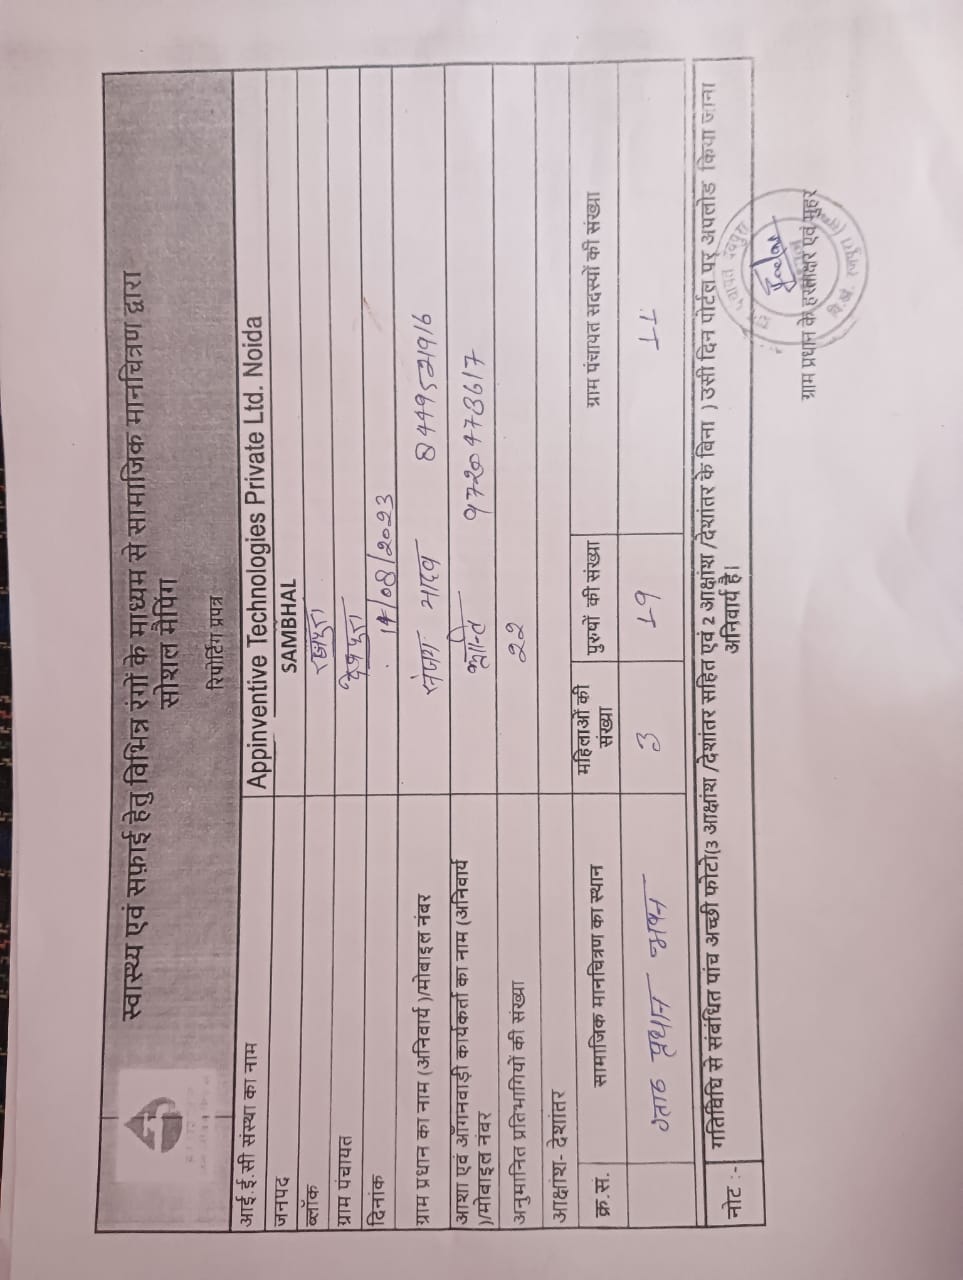 स्वास्थ्य एवं सफ़ाई हेतु विभिन्न रंगों के माध्यम से सामाजिक मानचित्रण द्वारा
सोशल मैपिंग
रिपोर्टिंग प्रपत्र
आई.ई.सी संस्था का नाम Appinventive Technologies Private Ltd. Noida
जनपद SAMBHAL
ब्लॉक रजपुरा
ग्राम पंचायत
दिनांक 14/08/2023
ग्राम प्रधान का नाम (अनिवार्य )/मोबाइल नंबर 8449521916
आशा एवं आँगनवाड़ी कार्यकर्ता का नाम (अनिवार्य
)/मोबाइल नंबर
अनुमानित प्रतिभागियों की संख्या 22
आक्षांश- देशांतर
क्र.सं. सामाजिक मानचित्रण का स्थान महिलाओं की संख्या पुरुषों की संख्या ग्राम पंचायत सदस्यों की संख्या
प्रधान 3 19 11
नोट :- गतिविधि से संबंधित पांच अच्छी फोटो(3 आक्षांश /देशांतर सहित एवं 2 आक्षांश /देशांतर के बिना ) उसी दिन पोर्टल पर अपलोड किया जाना
अनिवार्य है।
ग्राम प्रधान के हस्ताक्षर एवं मुहर